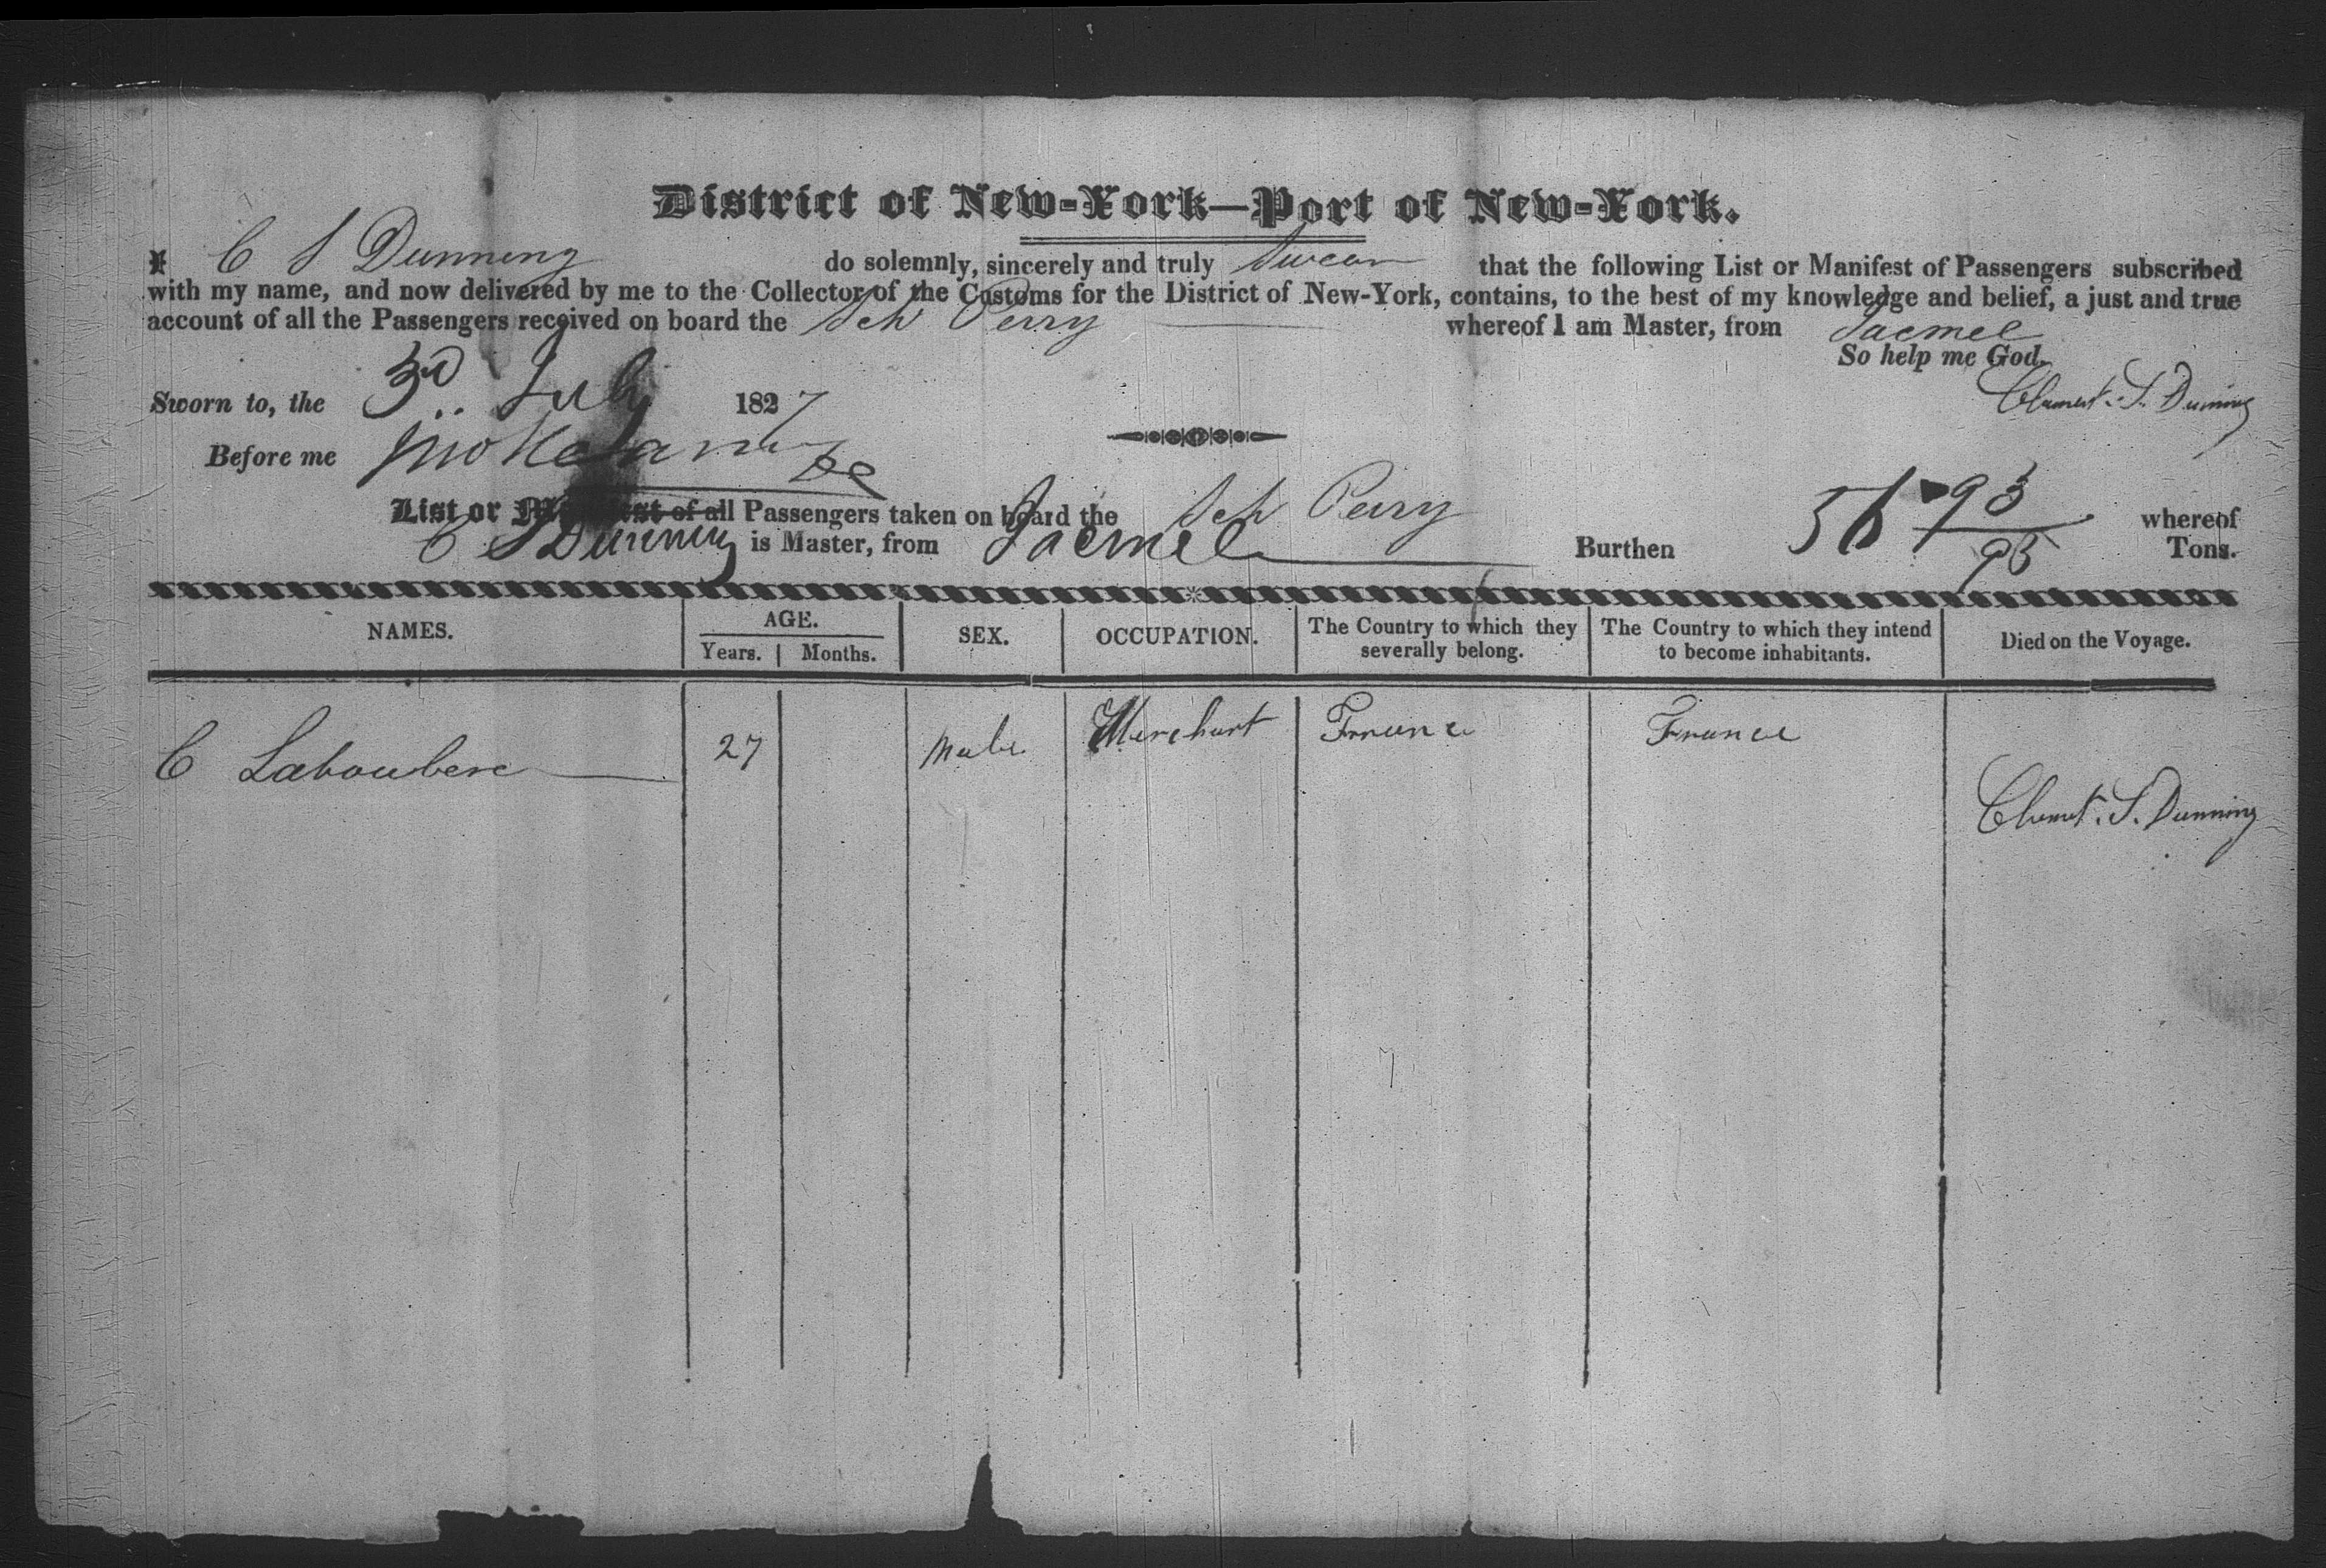 District of New-York—Port of New-York.
I C S Dunning do solemnly, sincerely and truly Swear that the following List or Manifest of Passengers subscribed
with my name, and now delivered by me to the Collector of the Customs for the District of New-York, contains, to the best of my knowledge and belief, a just and true
account of all the Passengers received on board the Sch Perry whereof I am Master, from Jacmel
So help me God.
Sworn to, the 3d July 1827
Clement. S. Dunning
Before me
List or Manifest of all Passengers taken on board the Sch Perry whereof
C S Dunning is Master, from Jacmel Burthen 56 93/95 Tons.
NAMES. AGE. SEX. OCCUPATION. The Country to which they severally belong. The Country to which they intend to become inhabitants. Died on the Voyage.
Years. Months.
C Laboubere 27 Male Merchant France France
Clement. S. Dunning